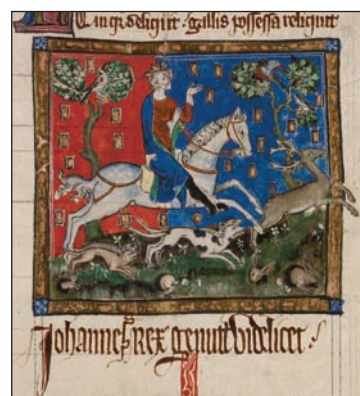 deliquit : gallis possessa reliquit
Johannes REX genuit videlicet :